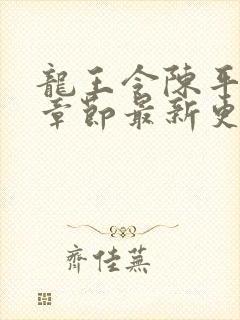 龍王令陳平
章節最新更
齊佳蕪